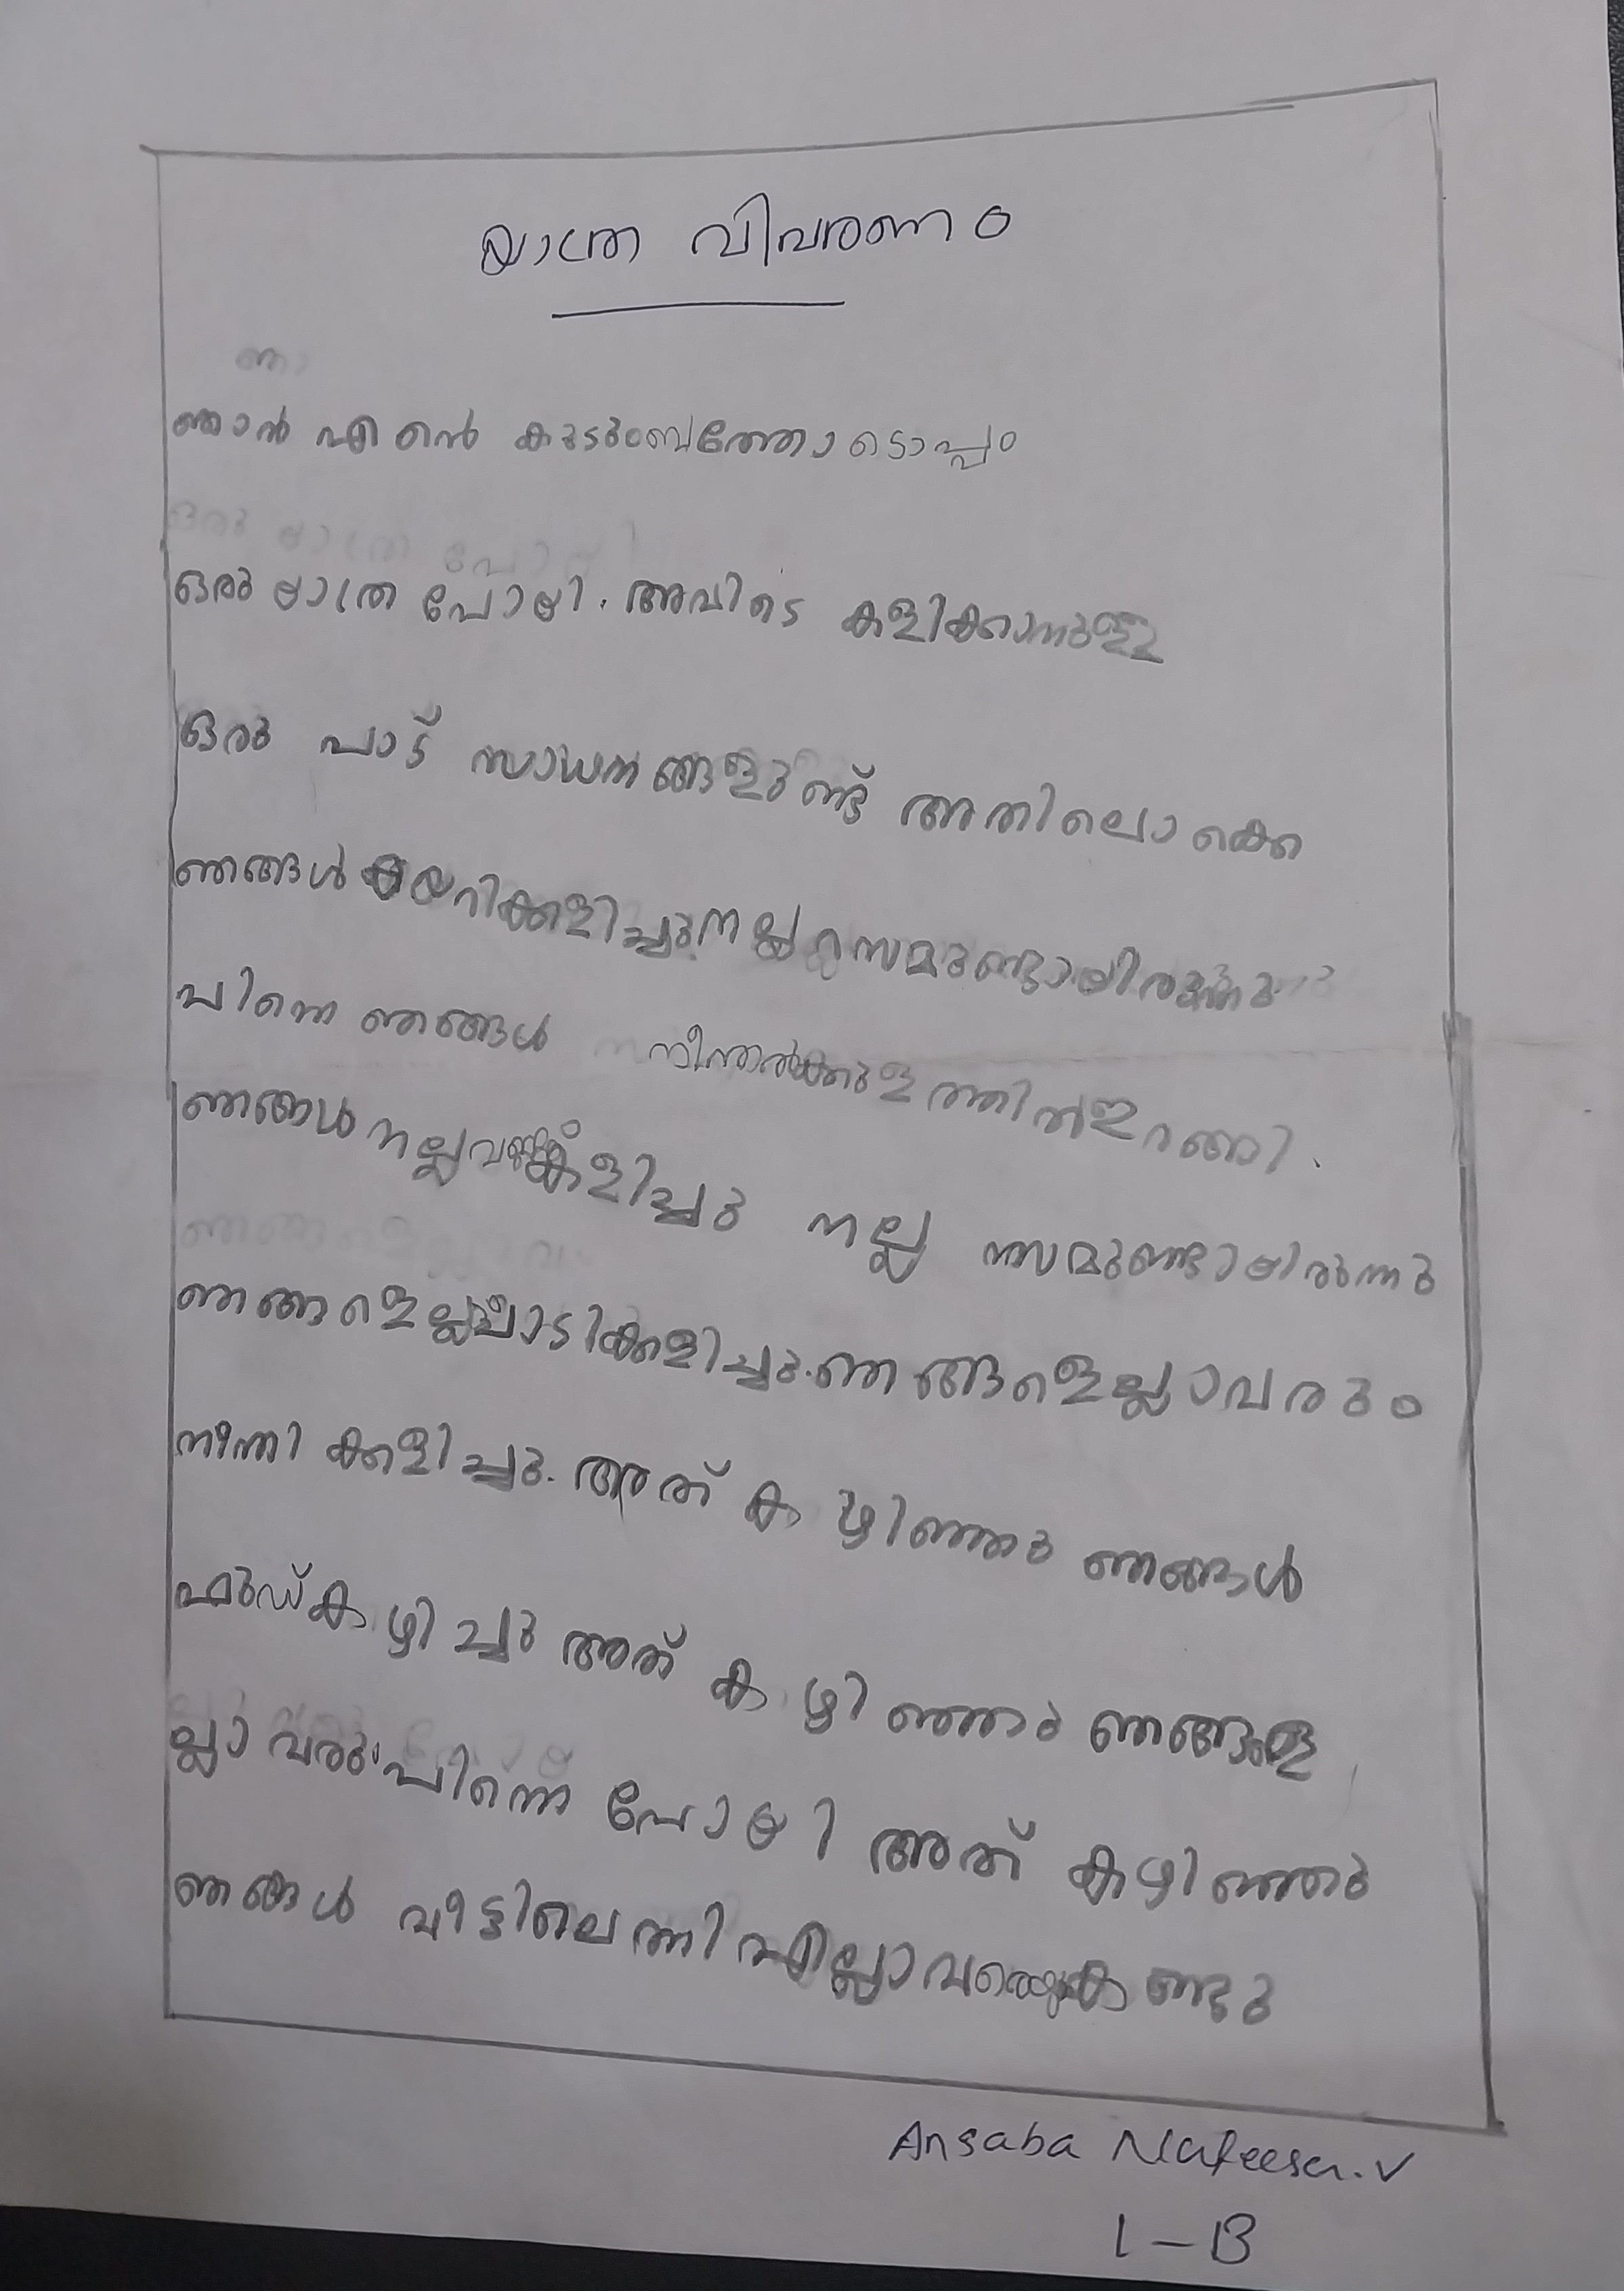 യാത്ര വിവരണം
ഞാൻ എൻെ കുടുംബത്തോടൊപ്പം
ഒരു യാത്ര പോയി. അവിടെ കളിക്കാനുള്ള
ഒരു പാട് സാധനങ്ങളുണ്ട് അതിലൊക്കെ
ഞങ്ങൾ കയറിക്കളിച്ചു നല്ല രസമുണ്ടായിരുന്നു
പിന്നെ ഞങ്ങൾ നീന്തൽക്കുളത്തിൽ ഇറങ്ങി.
ഞങ്ങൾ നല്ലവണ്ണം കളിച്ചു നല്ല രസമുണ്ടായിരുന്നു
കളിച്ചു. ഞങ്ങളെല്ലാവരും
നീന്തി ക്കളിച്ചു. അത് കഴിഞ്ഞു ഞങ്ങൾ
ഫുഡ് കഴിച്ചു അത് കഴിഞ്ഞു ഞങ്ങളെ
ല്ലാവരും പിന്നെ പോയി അത് കഴിഞ്ഞു
ഞങ്ങൾ വീട്ടിലെത്തി എല്ലാവരെയും കണ്ടു
Ansaba Nafeesa.V
1-B